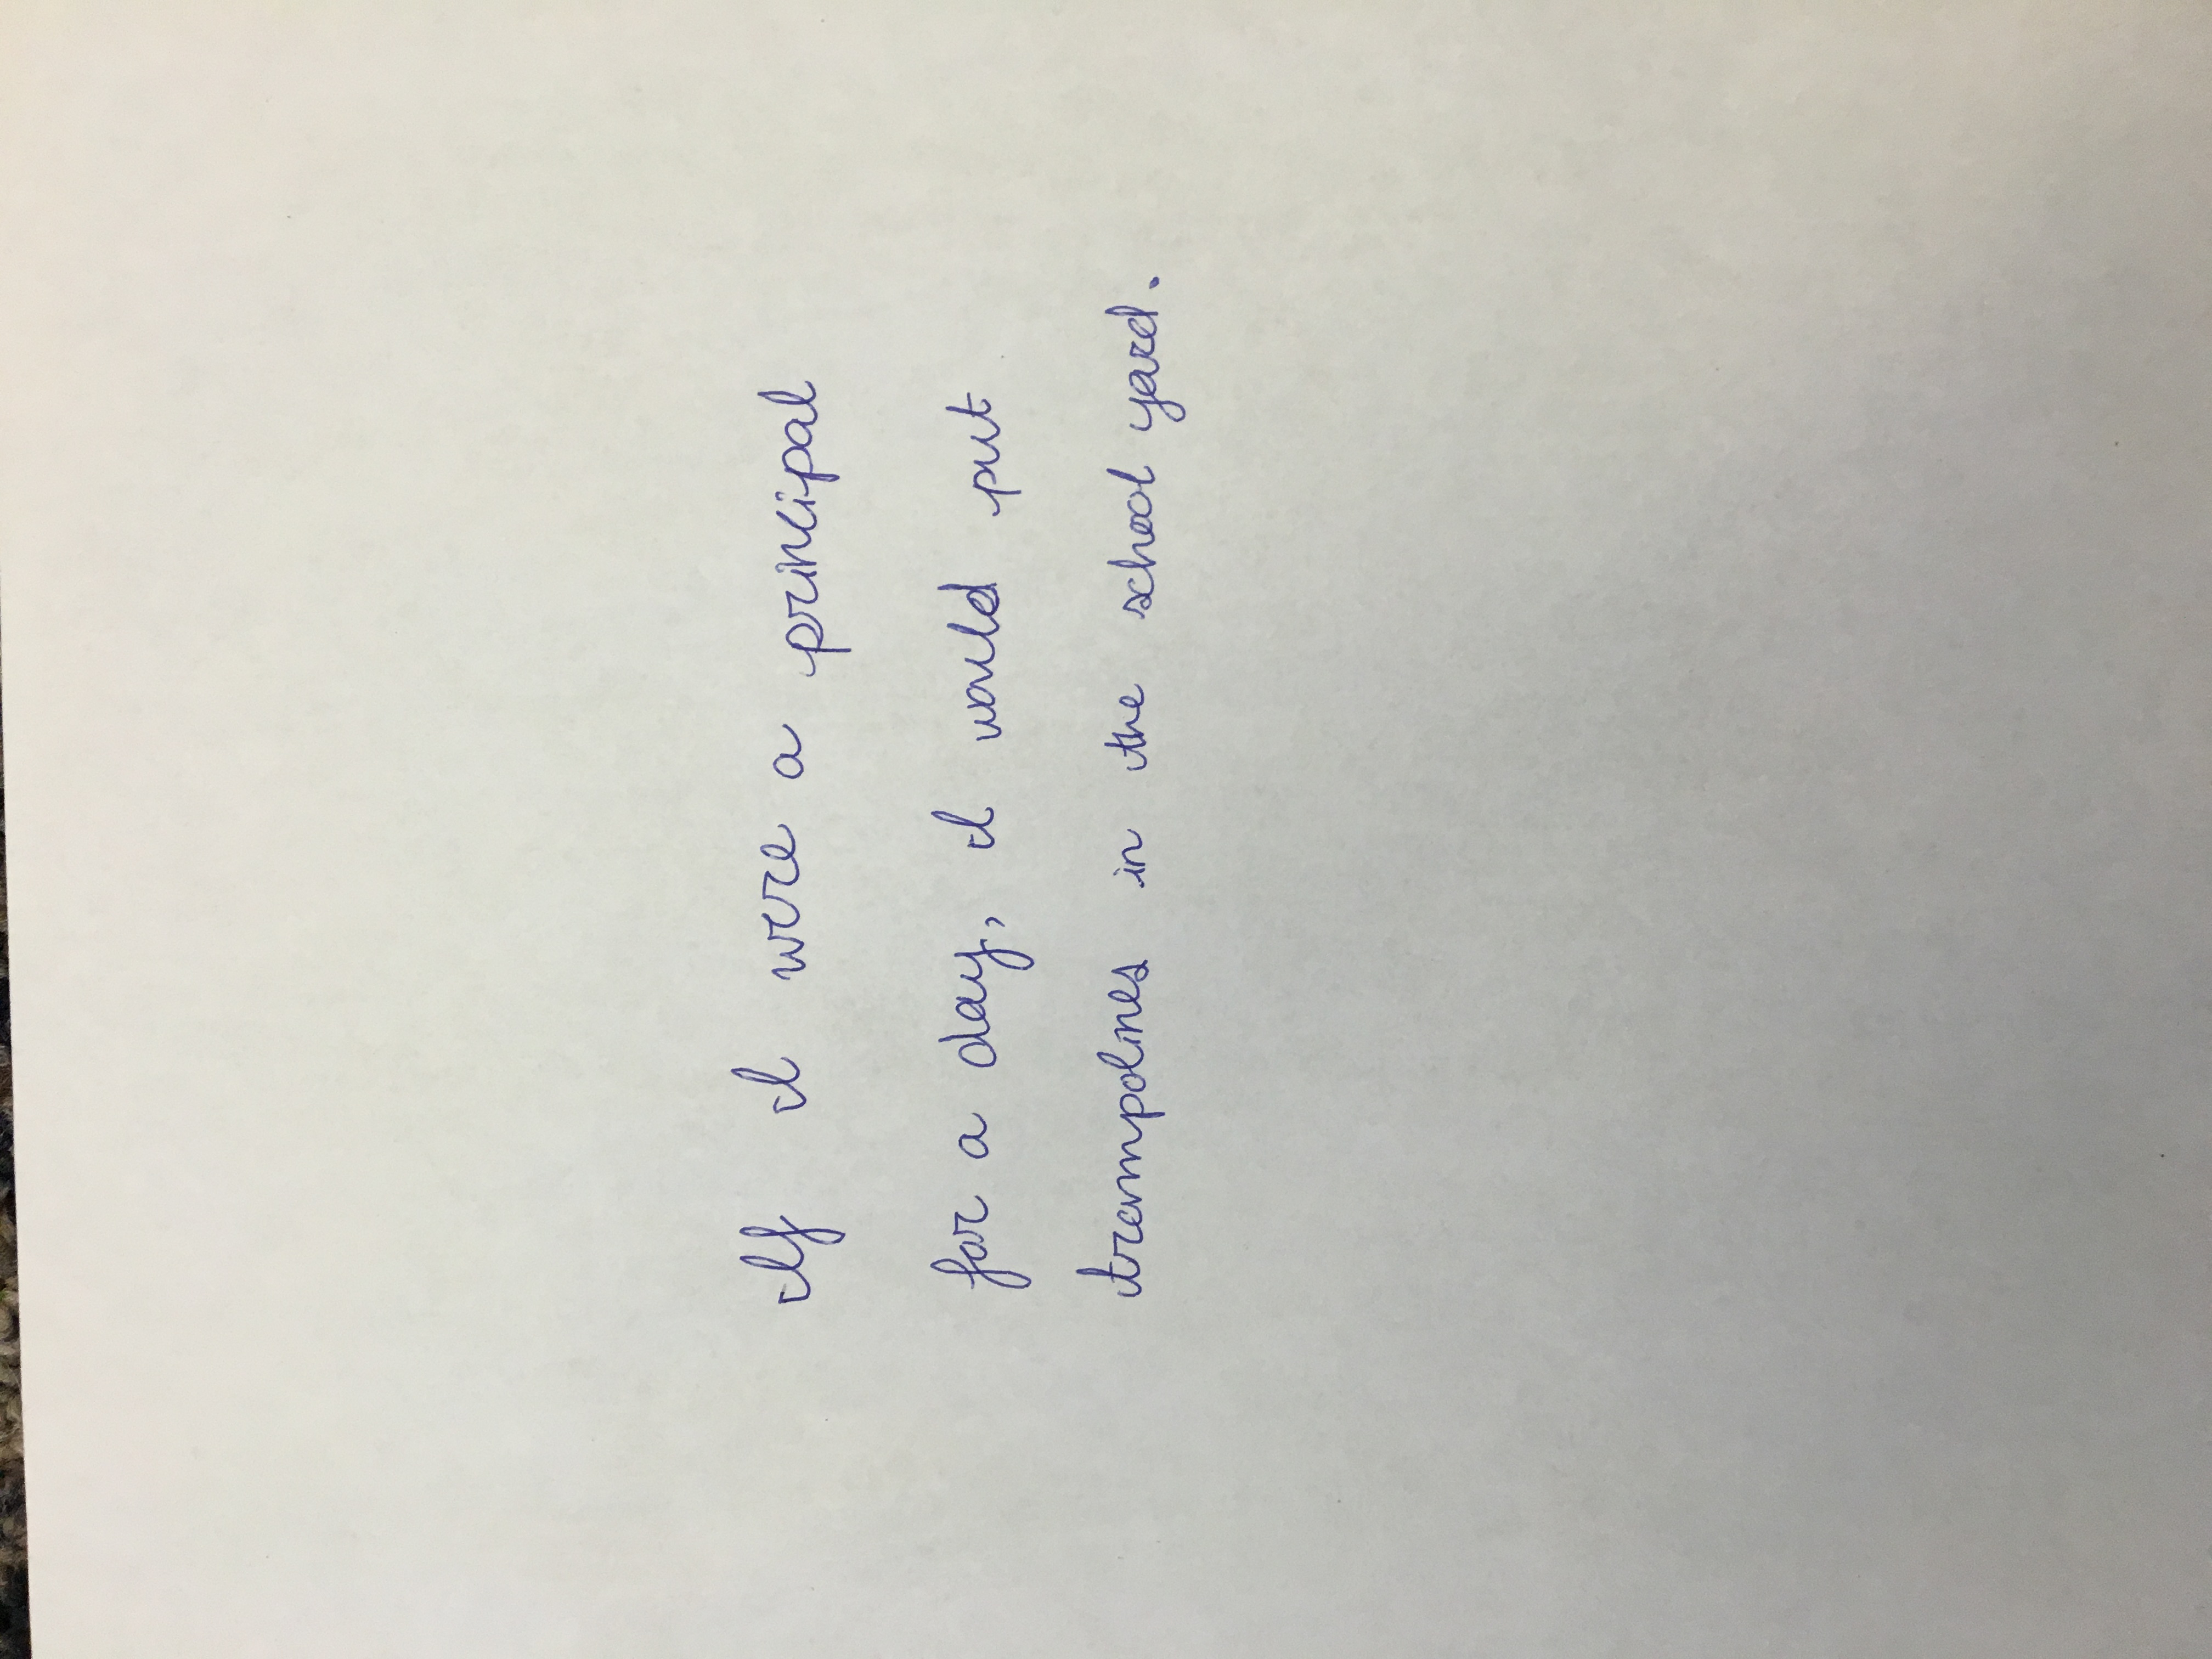 If I were a principal
for a day, I would put
trampolines in the school yard.